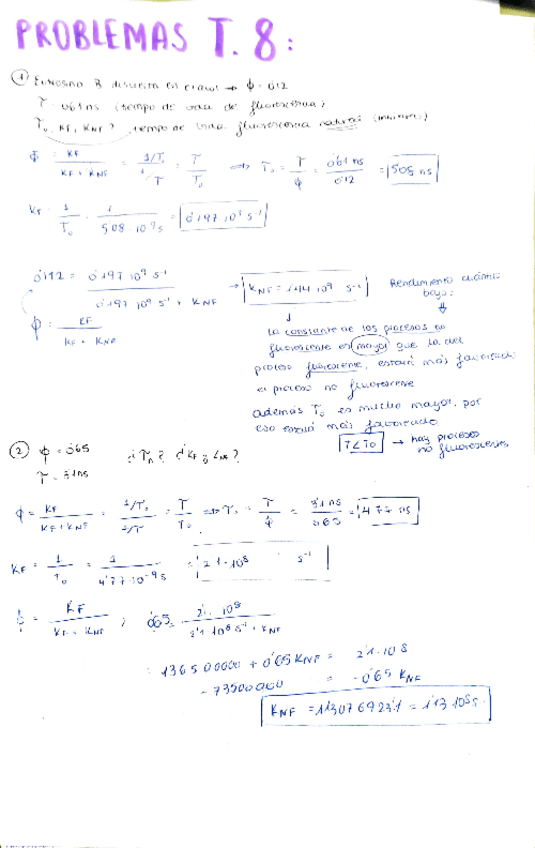 PROBLEMAS T. 8:
① Eosina B disuelta en etanol → ϕ = 0'12
τ = 0'61 ns (tiempo de vida de fluorescencia)
τ₀, KF, KNF? tiempo de vida fluorescencia natural
ϕ = KF / (KF + KNF) = (1/τ₀) / (1/τ) = τ / τ₀ ⟹ τ₀ = τ / ϕ = 0'61 ns / 0'12 = 5'08 ns
KF = 1 / τ₀ = 1 / (5'08 · 10⁻⁹ s) = 0'197 · 10⁹ s⁻¹
0'12 = 0'197 · 10⁹ s⁻¹ / (0'197 · 10⁹ s⁻¹ + KNF) → KNF = 1'44 · 10⁹ s⁻¹
ϕ = KF / (KF + KNF)
Rendimiento cuántico
bajo:
⇓
la constante de los procesos no
fluorescente es mayor que la del
proceso fluorescente, estará más favorecido
el proceso no fluorescente
además τ₀ es mucho mayor, por
eso estará más favorecido
τ < τ₀ → hay procesos
no fluorescentes
② ϕ = 0'65 ¿τ₀? ¿KF y KNF?
τ = 3'1 ns
ϕ = KF / (KF + KNF) = (1/τ₀) / (1/τ) = τ / τ₀ ⟹ τ₀ = τ / ϕ = 3'1 ns / 0'65 = 4'77 ns
KF = 1 / τ₀ = 1 / (4'77 · 10⁻⁹ s) = 2'1 · 10⁸ s⁻¹
ϕ = KF / (KF + KNF) ; 0'65 = 2'1 · 10⁸ / (2'1 · 10⁸ s⁻¹ + KNF)
136500000 + 0'65 KNF = 2'1 · 10⁸
- 73500000 = - 0'65 KNF
KNF = 113076923'1 = 1'13 · 10⁸ s